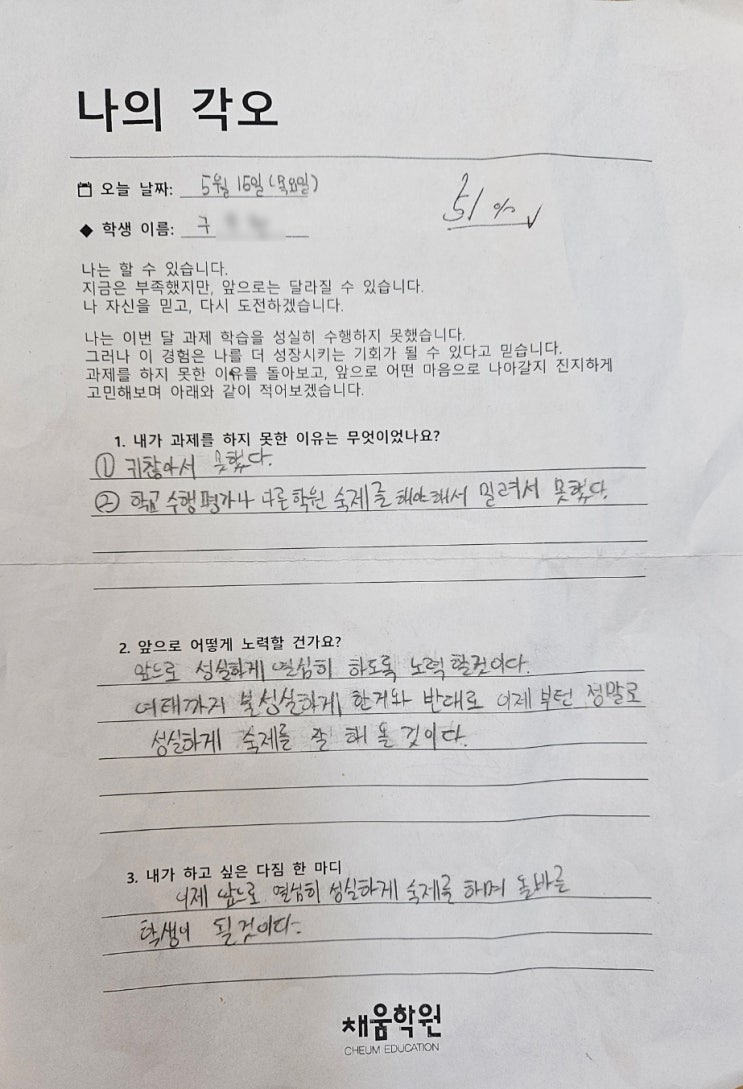 나의 각오
오늘 날짜: 5월 15일(목요일)
51%
학생 이름: 구
나는 할 수 있습니다.
지금은 부족했지만, 앞으로는 달라질 수 있습니다.
나 자신을 믿고, 다시 도전하겠습니다.
나는 이번 달 과제 학습을 성실히 수행하지 못했습니다.
그러나 이 경험은 나를 더 성장시키는 기회가 될 수 있다고 믿습니다.
과제를 하지 못한 이유를 돌아보고, 앞으로 어떤 마음으로 나아갈지 진지하게
고민해보며 아래와 같이 적어보겠습니다.
1. 내가 과제를 하지 못한 이유는 무엇이었나요?
① 귀찮아서 못했다.
② 학교 수행평가나 다른학원 숙제를 해야해서 밀려서 못했다.
2. 앞으로 어떻게 노력할 건가요?
앞으로 성실하게 열심히 하도록 노력할것이다.
여태까지 불성실하게 한거와 반대로 이제부턴 정말로
성실하게 숙제를 잘 해 올 것이다.
3. 내가 하고 싶은 다짐 한 마디
이제 앞으로 열심히 성실하게 숙제를 하며 올바른
학생이 될것이다.
채움학원
CHEUM EDUCATION